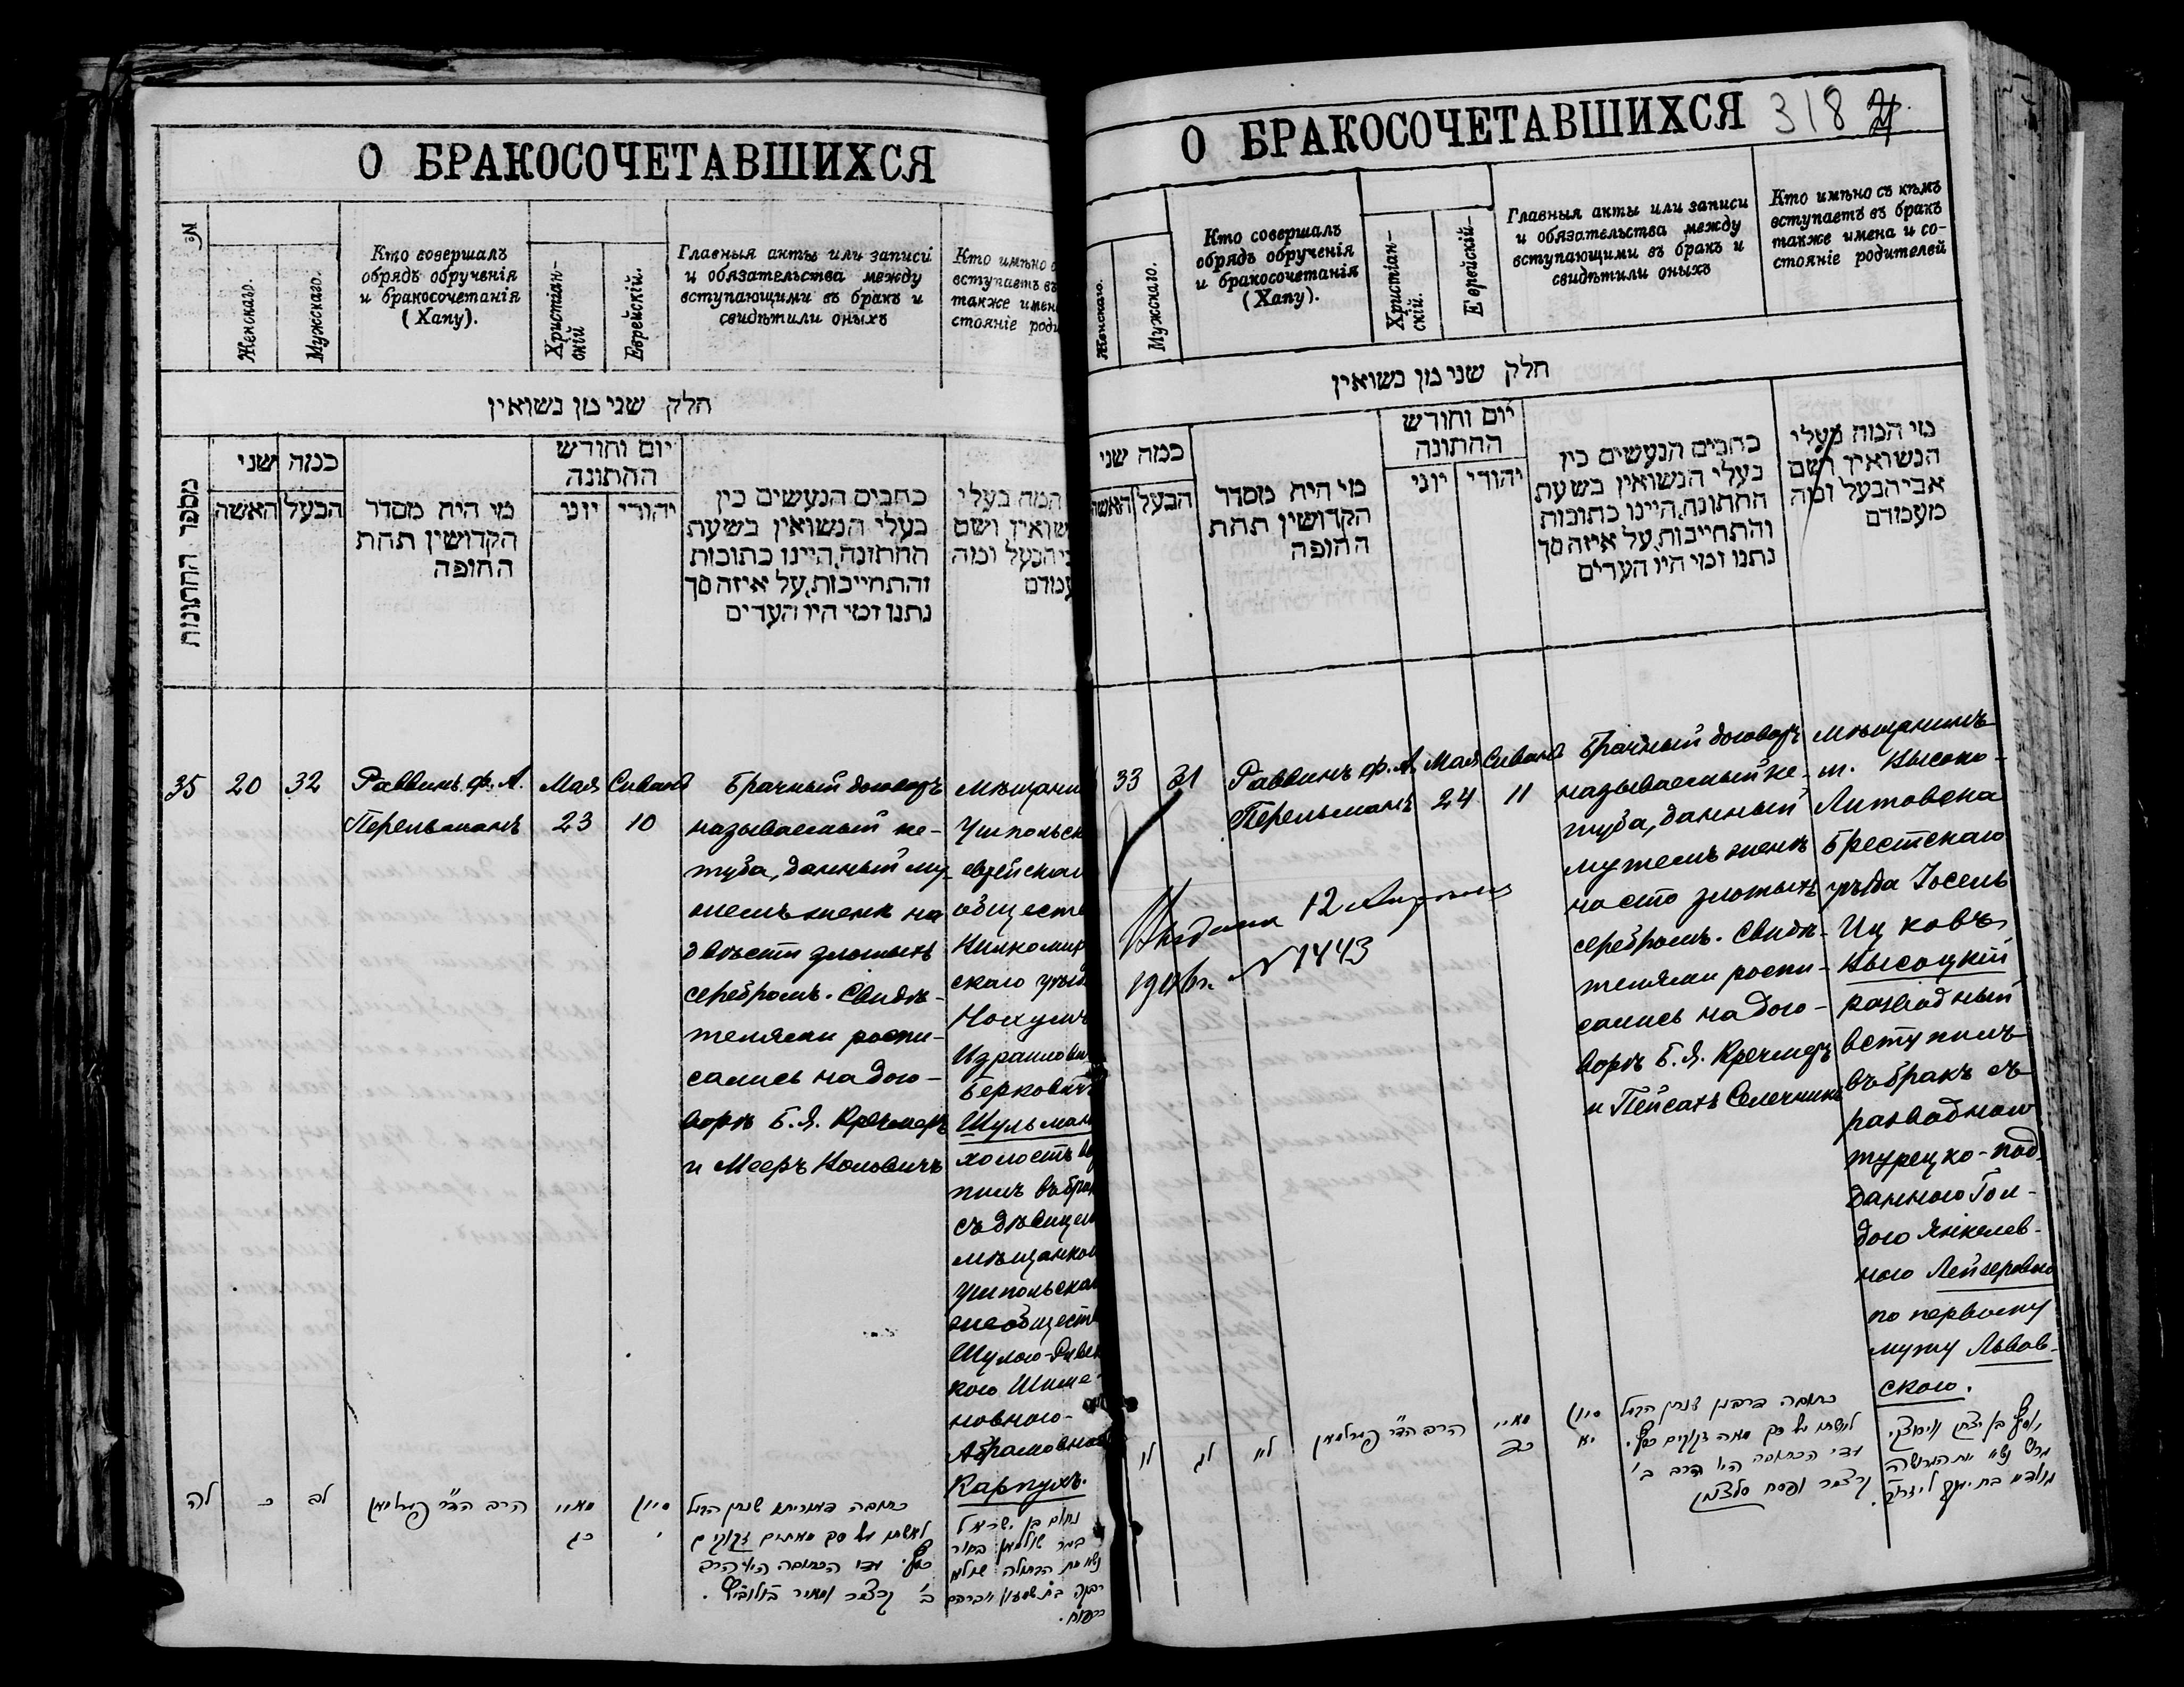 О БРАКОСОЧЕТАВШИХСЯ
№
Женскаго.
Мужскаго.
Кто совершалъ
обрядъ обрученія
и бракосочетанія
(Хапу).
Христіан-
скій
Еврейскій.
Главныя акты или записи
и обязательства между
вступающими въ бракъ и
свидѣтили оныхъ
Кто имѣно
вступаетъ въ
также имен
стояніе роди
חלק שני מן נשואין
מספר החתונות
כמה שני
האשה
הבעל
מי היה מסדר
הקדושין תחת
החופה
יום וחודש
החתונה
יוני
יהודי
כתבים הנעשים בין
בעלי הנשואין בשעת
החתונה, היינו כתובות
והתחייבות, על איזה סך
נתנו ומי היו העדים
המה בעלי
שואין ושם
ביהבעל ומה
עמדם
35
20
32
Раввинъ ф. А.
Перельманъ
Мая
23
Сивана
10
Брачный договоръ
называемый ке-
туба, данный му-
жемъ женѣ на
двѣсти злотыхъ
серебромъ. Свидѣ-
телями роспи-
сались на дого-
ворѣ Б. Я. Кречмеръ
и Мееръ Коловичъ
Мѣщани
Ушпольск
еврейскаг
обществ
Вилкомир
скаго уѣзд
Нохумъ
Израилови
Берковичъ
Шульман
холостъ вс
пилъ въ бра
съ дѣвицею
мѣщанкою
Ушпольска
же обществ
Шулою-Рив
кою Шиме-
новною-
Абрамовно
Карпухъ.
לה
כ
לב
הרב הד״ר פערלמאן
מאיי
כג
סיון
י
לאשתו על סך מאתים זקוקים
כסף. ועדי הכתובה היו הרב
נחום בן ישראל
О БРАКОСОЧЕТАВШИХСЯ
318
Женскаго.
Мужскаго.
Кто совершалъ
обрядъ обрученія
и бракосочетанія
(Хапу).
Христіан-
скій.
Еврейскій-
Главныя акты или записи
и обязательства между
вступающими въ бракъ и
свидѣтили оныхъ
Кто имѣно съ кѣмъ
вступаетъ въ бракъ
также имена и со-
стояніе родителей
חלק שני מן נשואין
כמה שני
האשה
הבעל
מי היה מסדר
הקדושין תחת
החופה
יום וחודש
החתונה
יוני
יהודי
כתבים הנעשים בין
בעלי הנשואין בשעת
החתונה, היינו כתובות
והתחייבות, על איזה סך
נתנו ומי היו העדים
מי המה בעלי
הנשואין ושם
אביהבעל ומה
מעמדם
33
31
Раввинъ ф. А.
Перельманъ
Мая
24
Сивана
11
Брачный договоръ
называемый ке-
туба, данный
мужемъ женѣ
на сто злотыхъ
серебромъ. Свидѣ-
телями роспи-
сались на дого-
ворѣ Б. Я. Кречмеръ
и Пейсахъ Солечникъ
мѣщанинъ
м. Высоко-
Литовска
Брестскаго
уѣзда Іосель
Ицковъ
Высоцкій
разводный
вступилъ
въ бракъ съ
разводною
турецко-под-
данною Гол-
дою Янкелев-
ною Лейзеровною
по первому
мужу Львов-
скою.
Выдана 12
№ 1443
לג
הרב הד״ר פערלמאן
מאיי
כד
סיון
יא
לאשתו על סך מאה זקוקים כסף.
ועדי הכתובה היו הרב ב׳